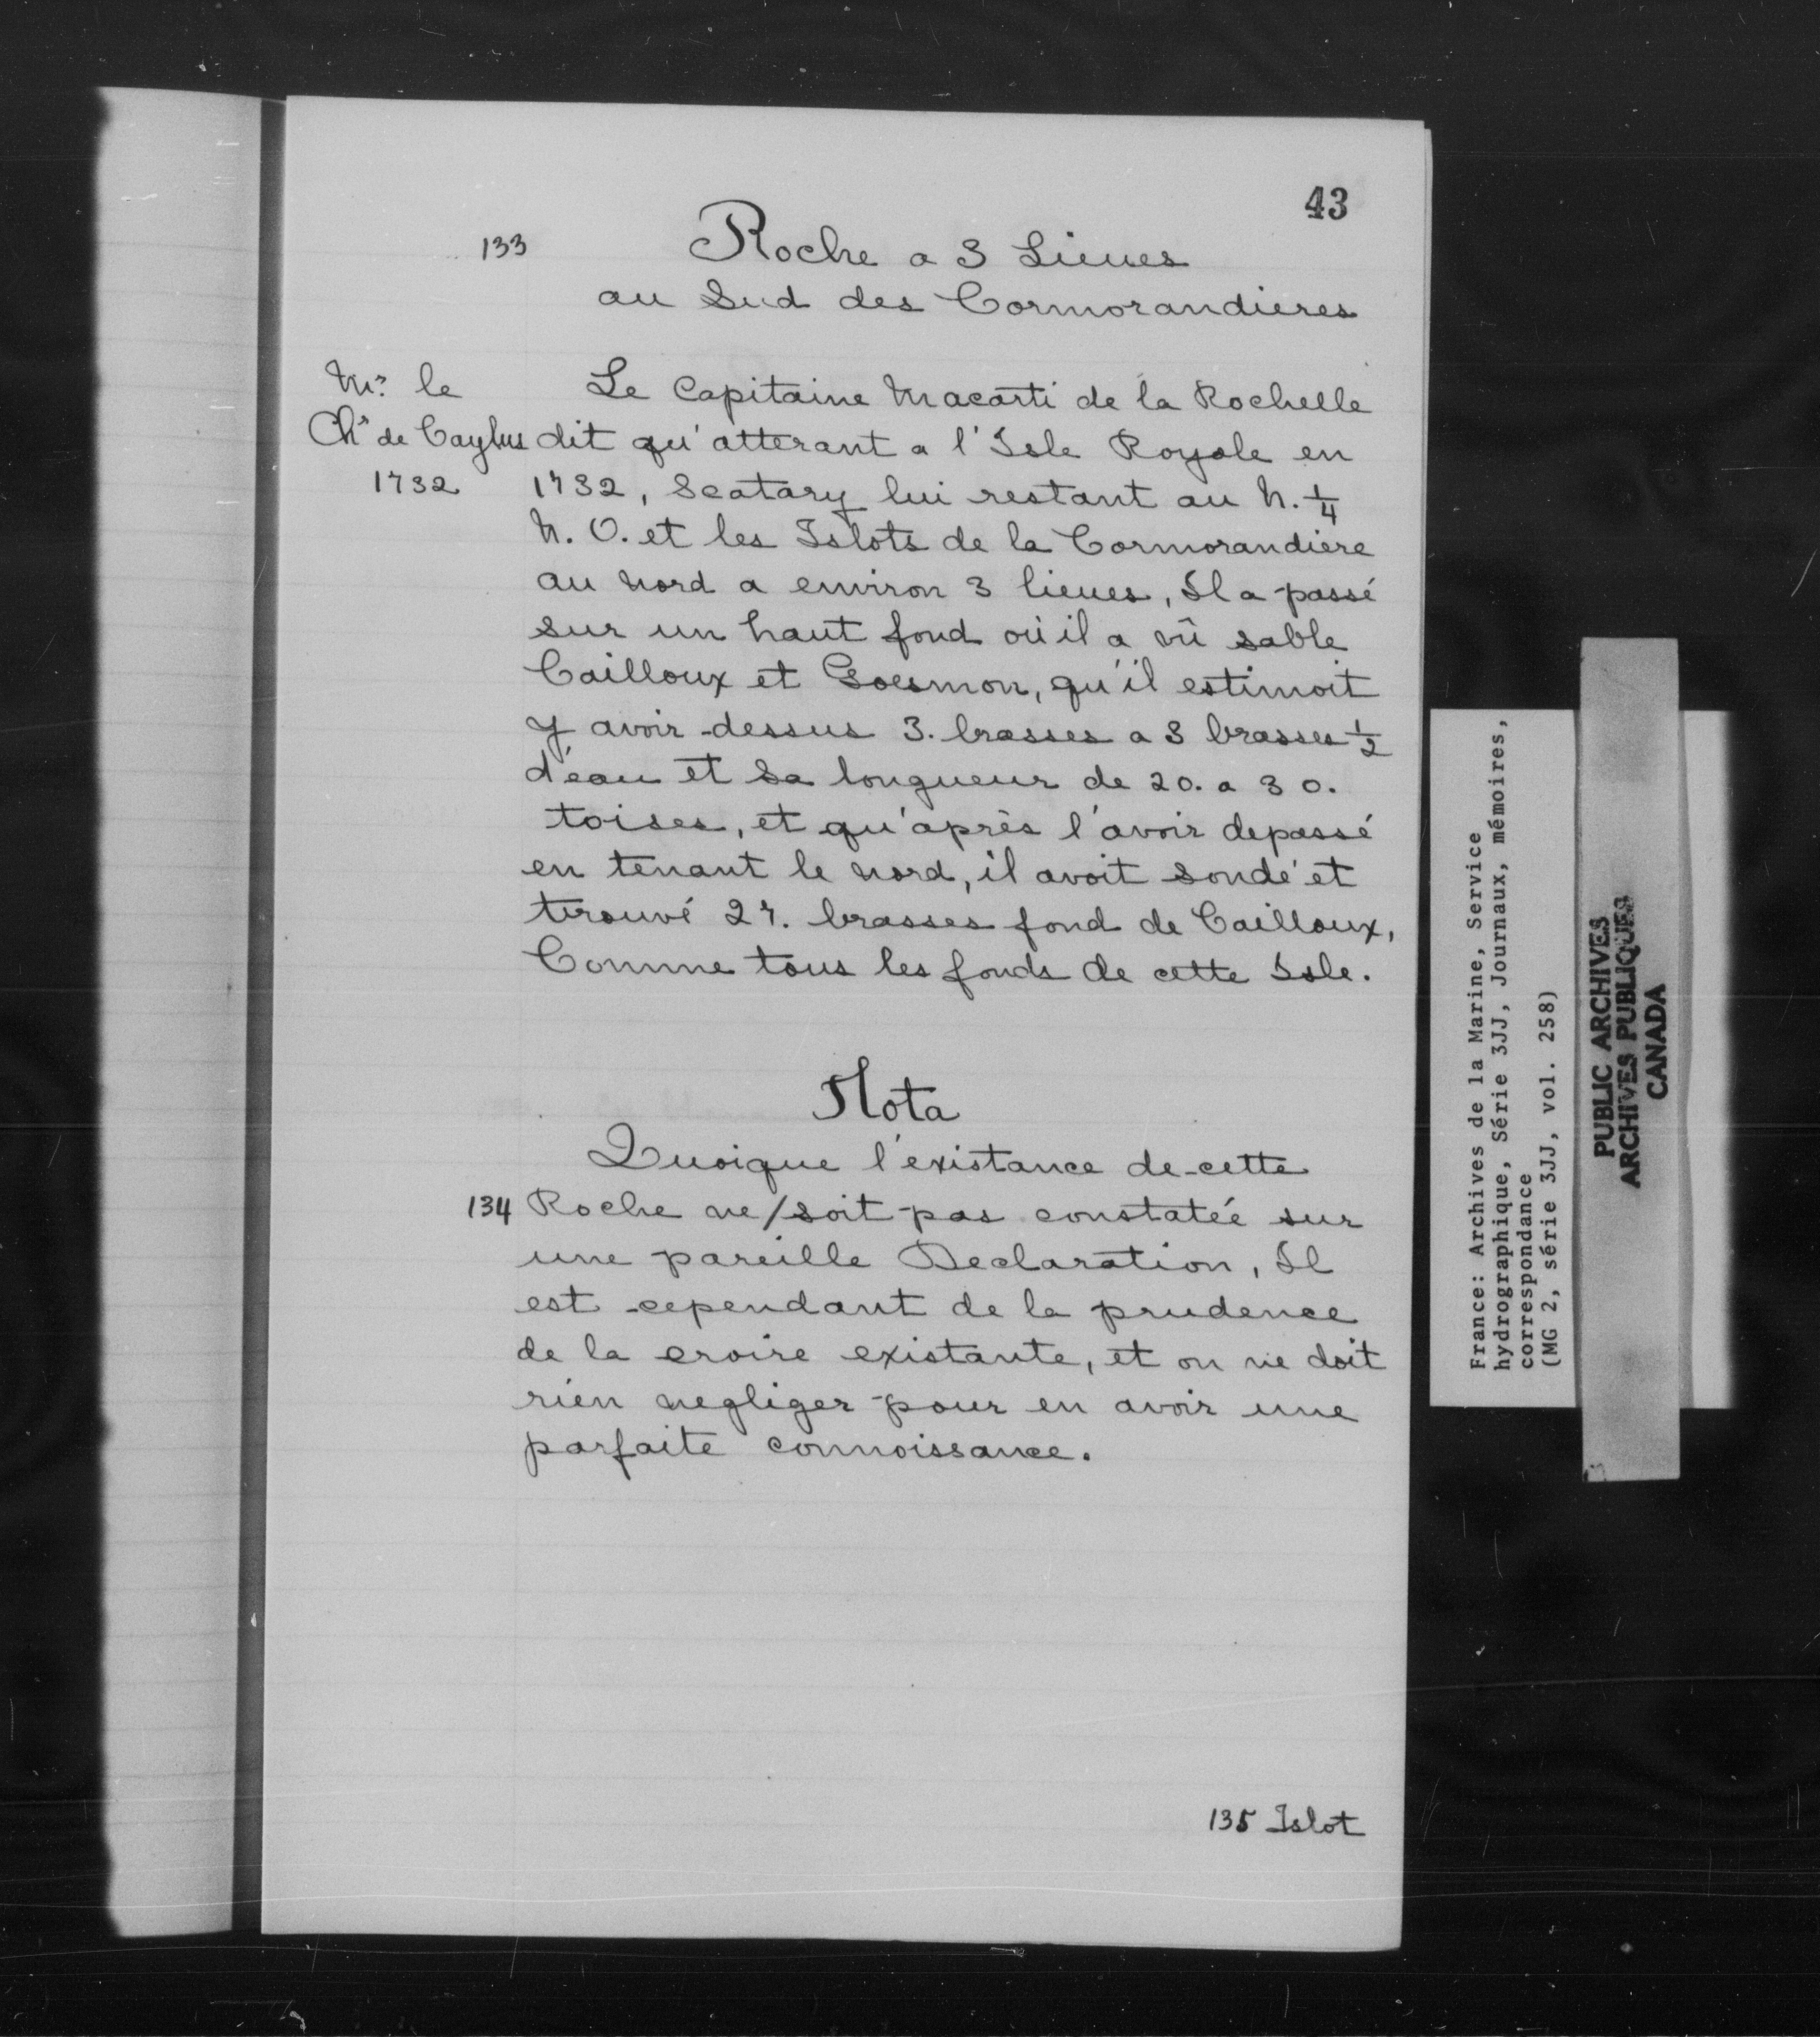 43
133
Roche a 3 Lieues
au Sud des Cormorandieres
Mr. le
Chr de Caylus
1732
Le Capitaine Macarti de la Rochelle
dit qu'atterant a l'Isle Royale en
1732, Scatary lui restant au N. 1/4
N. O. et les Islots de la Cormorandiere
au nord a environ 3 lieues, Il a passé
sur un haut fond où il a vû sable
Cailloux et Goesmon, qu'il estimoit
y avoir dessus 3. brasses a 3 brasses 1/2
d'eau et sa longueur de 20. a 30.
toises, et qu'après l'avoir depassé
en tenant le nord, il avoit sondé et
trouvé 27. brasses fond de Cailloux,
Comme tous les fonds de cette Isle.
Nota
Quoique l'existance de cette
134 Roche ne/soit pas constatée sur
une pareille Declaration, Il
est cependant de la prudence
de la croire existante, et on ne doit
rien negliger pour en avoir une
parfaite connoissance.
135 Islot
France: Archives de la Marine, Service
hydrographique, Série 3JJ, Journaux, mémoires,
correspondance
(MG 2, série 3JJ, vol. 258)
PUBLIC ARCHIVES
ARCHIVES PUBLIQUES
CANADA